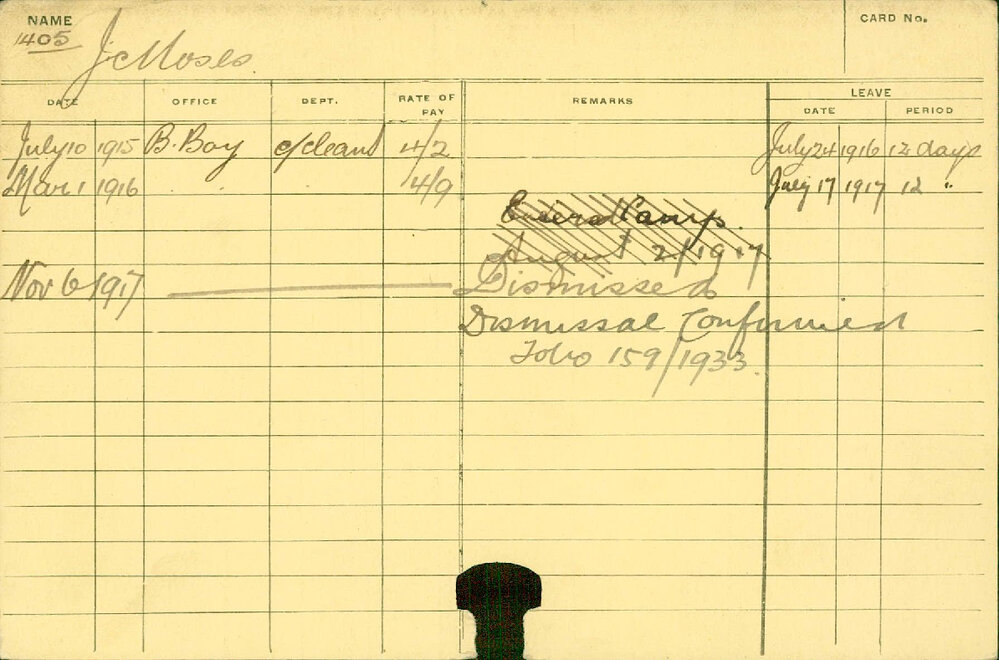 NAME
CARD No.
1405
J C Moses
DATE OFFICE DEPT. RATE OF PAY REMARKS LEAVE
DATE PERIOD
July 10 1915 B. Boy c/cleand 4/2 July 24 1916 12 days
Mar 1 1916 4/9 July 17 1917 12 "
Entered Camp.
August 2/1917
Nov 6 1917 Dismissed
Dismissal Confirmed
Folio 159/1933.